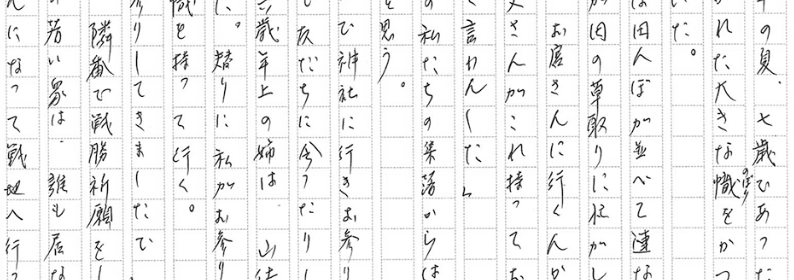 年の夏、七歳であった
かれた大きな幟をかつ
いた。
は田んぼが並べて連な
が田の草取りに忙がし
お宮さんに行くんか
父さんがこれ持ってお
と言わんした」
の私たちの集落からは
を思う。
び神社に行きお参り
友だちに会ったりし
歳年上の姉は、山仕
に。替りに私がお参り
幟を持って行く。
参りしてきましたで
隣番で戦勝祈願をし
の若い衆は、誰も居な
んになって戦地へ行っ